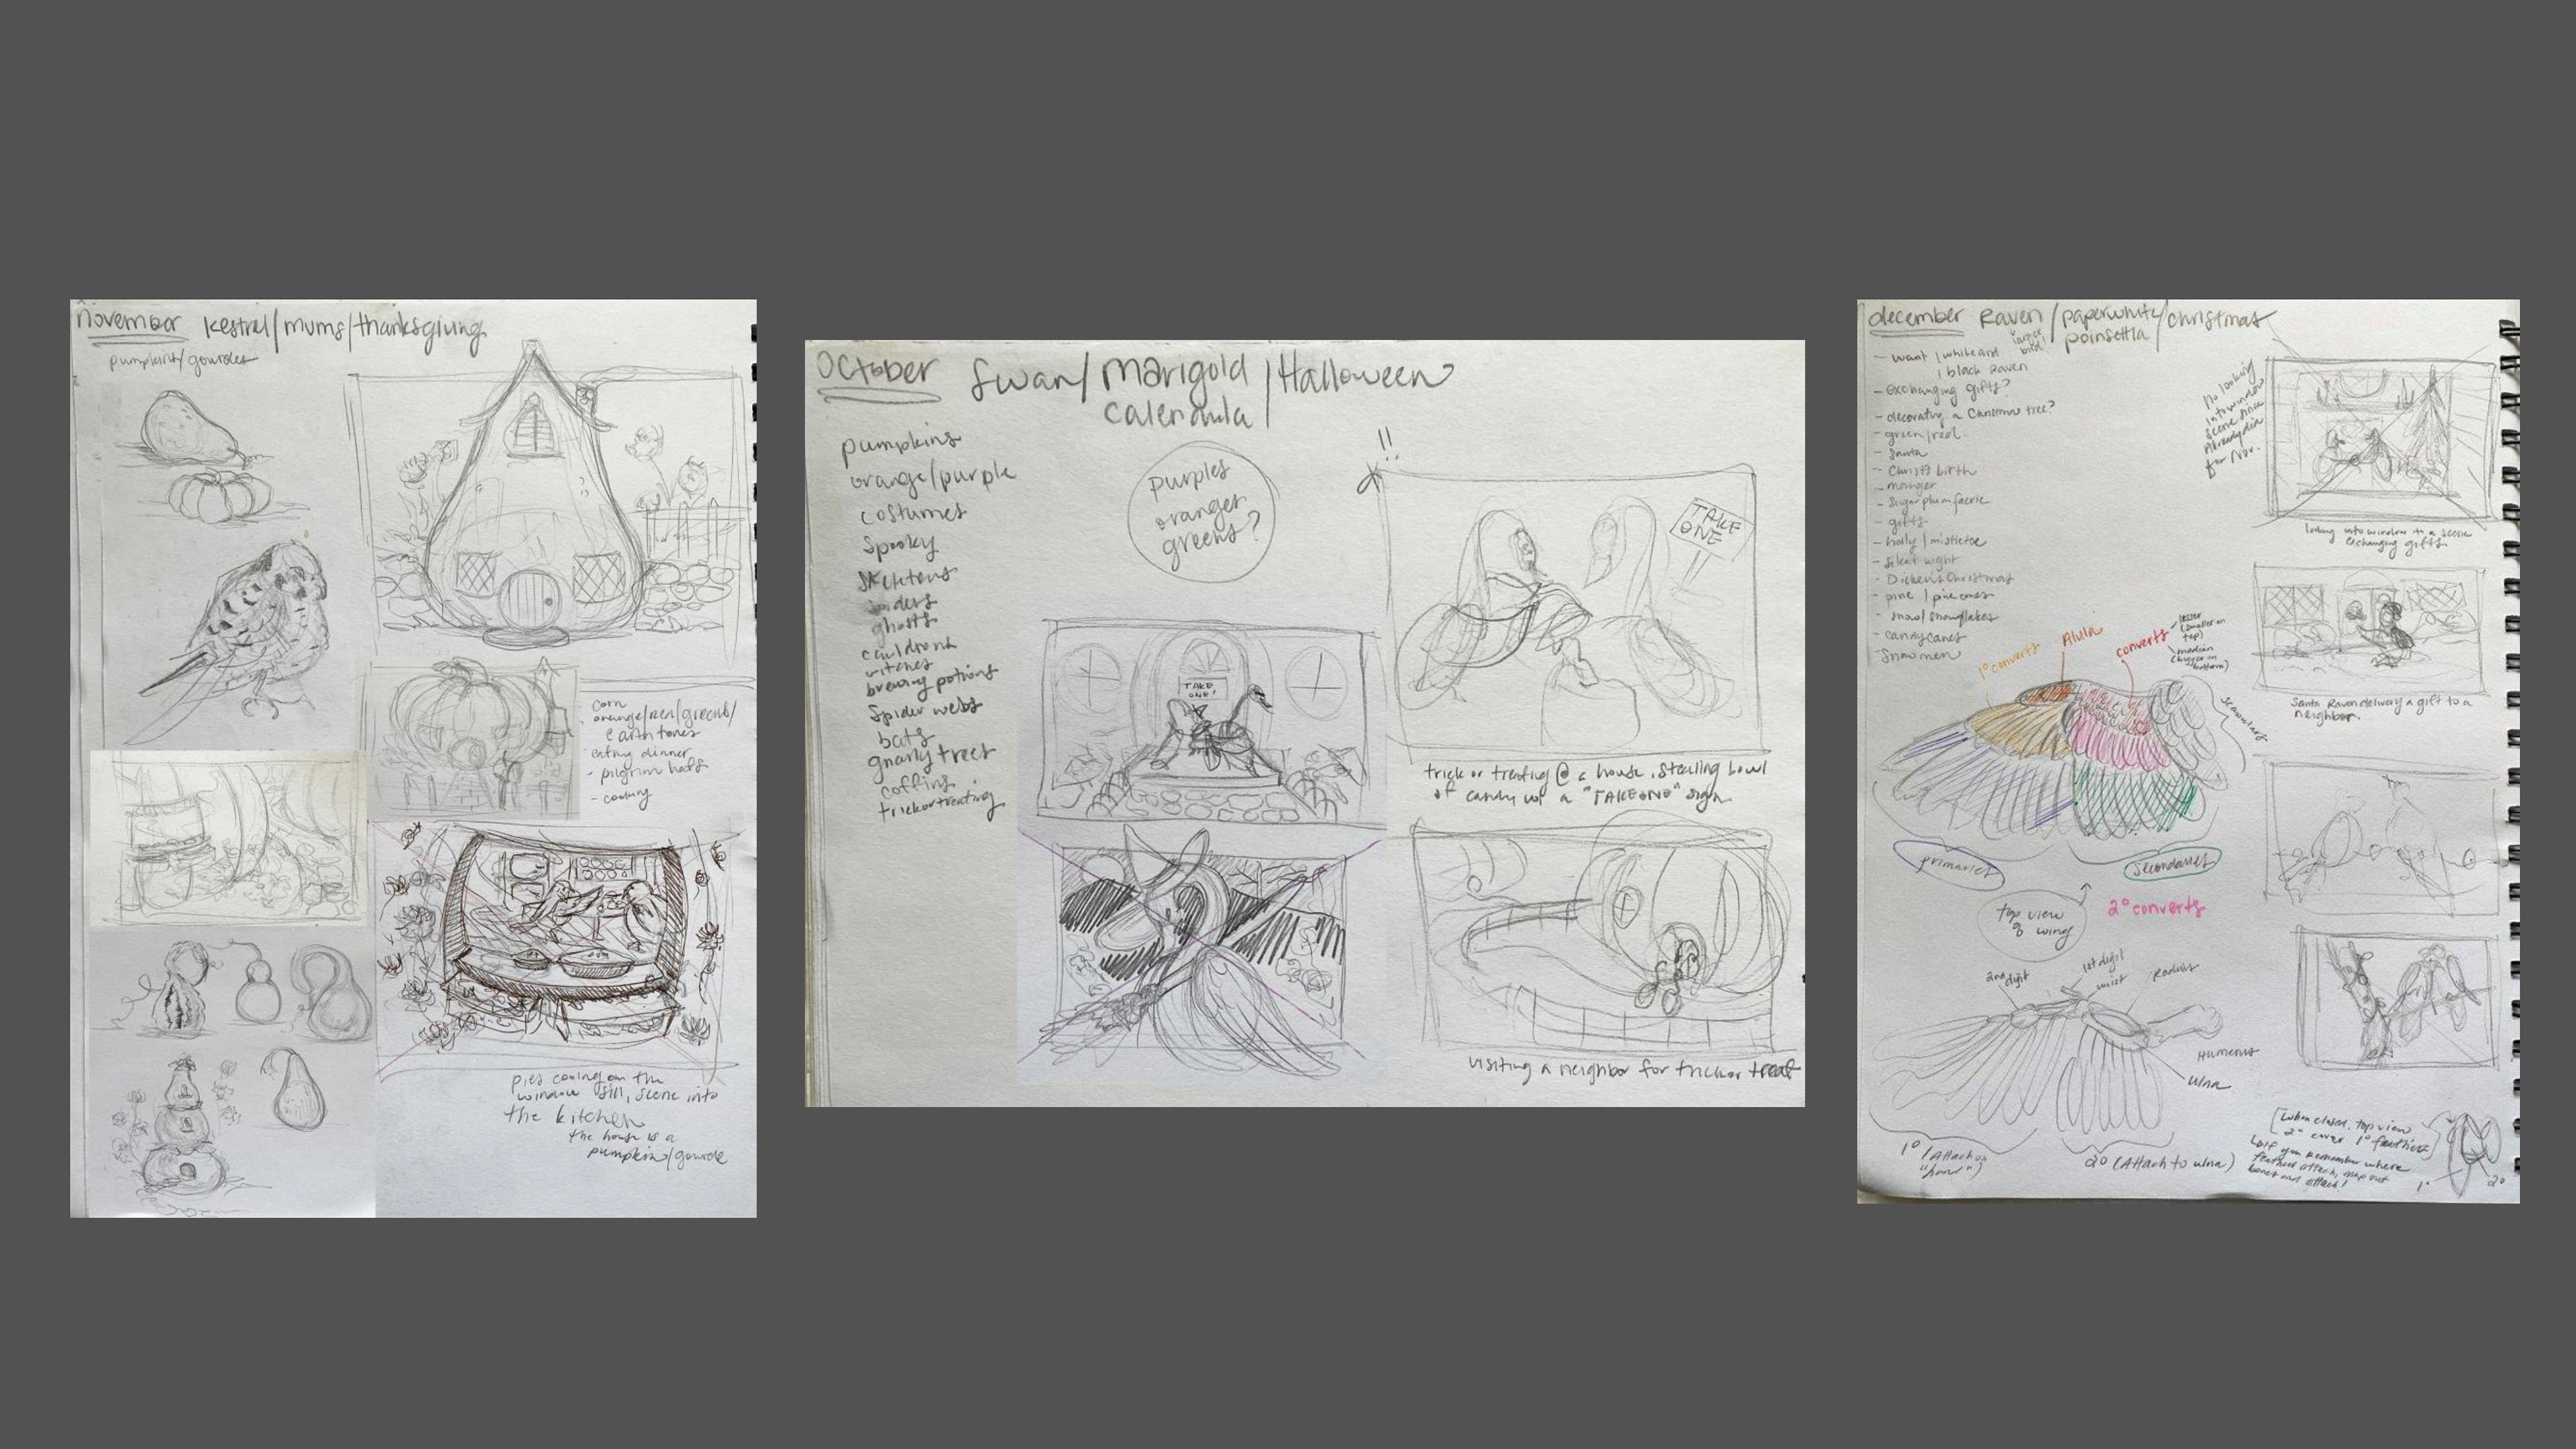 november kestrel/mums/thanksgiving
pumpkins/gourdes
corn
orange/red/greens/
earth tones
eating dinner
- pilgrim hats
- cooking
pies cooling on the
window sill, scene into
the kitchen
the house is a
pumpkin/gourde
October Swan/Marigold/Halloween
calendula
pumpkins
orange/purple
costumes
Spooky
Skeletons
spiders
ghosts
cauldrons
witches
brewing potions
Spider webs
bats
gnarly trees
coffins
trick or treating
purples
oranges
greens?
!!
TAKE
ONE
TAKE
ONE!
trick or treating @ a house, stealing bowl
of candy w/ a "TAKE ONE" sign.
visiting a neighbor for trick or treat
december Raven/paperwhite/christmas
poinsettia
larger
bird!
- want 1 white and
1 black Raven
- exchanging gifts?
- decorating a Christmas tree?
- green/red
- Santa
- Christ's birth
- manger
- sugar plum faerie
- gifts
- holly/mistletoe
- silent night
- Dickens Christmas
- pine/pinecones
- snow/snowflakes
- candycanes
- Snowmen
No looking
into window
scene since
already did
for Nov.
looking into window to a scene
exchanging gifts
Santa Raven delivery a gift to a
neighbor.
1° converts
Alula
converts
lesser
(smaller on
top)
median
(bigger on
bottom)
scapulars
primaries
secondaries
top view
of wing
2° converts
2nd digit
1st digit
wrist
Radius
Humerus
ulna
1° (Attach on
"hand")
2° (Attach to ulna)
[When closed, top view
2° cover 1° feathers
if you remember where
feathers attach, map out
bones and attach!
1°
2°